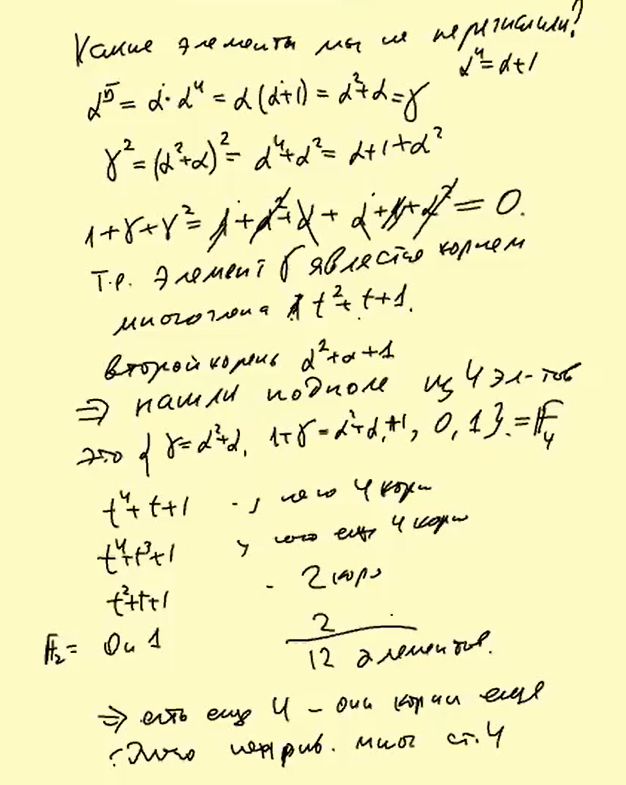 Какие элементы мы не перечислили?
α⁴=α+1
α⁵ = α·α⁴ = α(α+1) = α²+α = γ
γ² = (α²+α)² = α⁴+α² = α+1+α²
1+γ+γ² = 1+α²+α+α+1+α² = 0.
Т.е. элемент γ является корнем
многочлена t²+t+1.
второй корень α²+α+1
⇒ нашли подполе из 4 эл-тов
это { γ=α²+α, 1+γ=α²+α+1, 0, 1}.=F₄
t⁴+t+1 - у него 4 корн
t⁴+t³+1 у него еще 4 корн
t²+t+1 - 2 корн
F₂= 0 и 1 2
12 элементов.
⇒ есть еще 4 – они корни еще
неприв. мног ст. 4